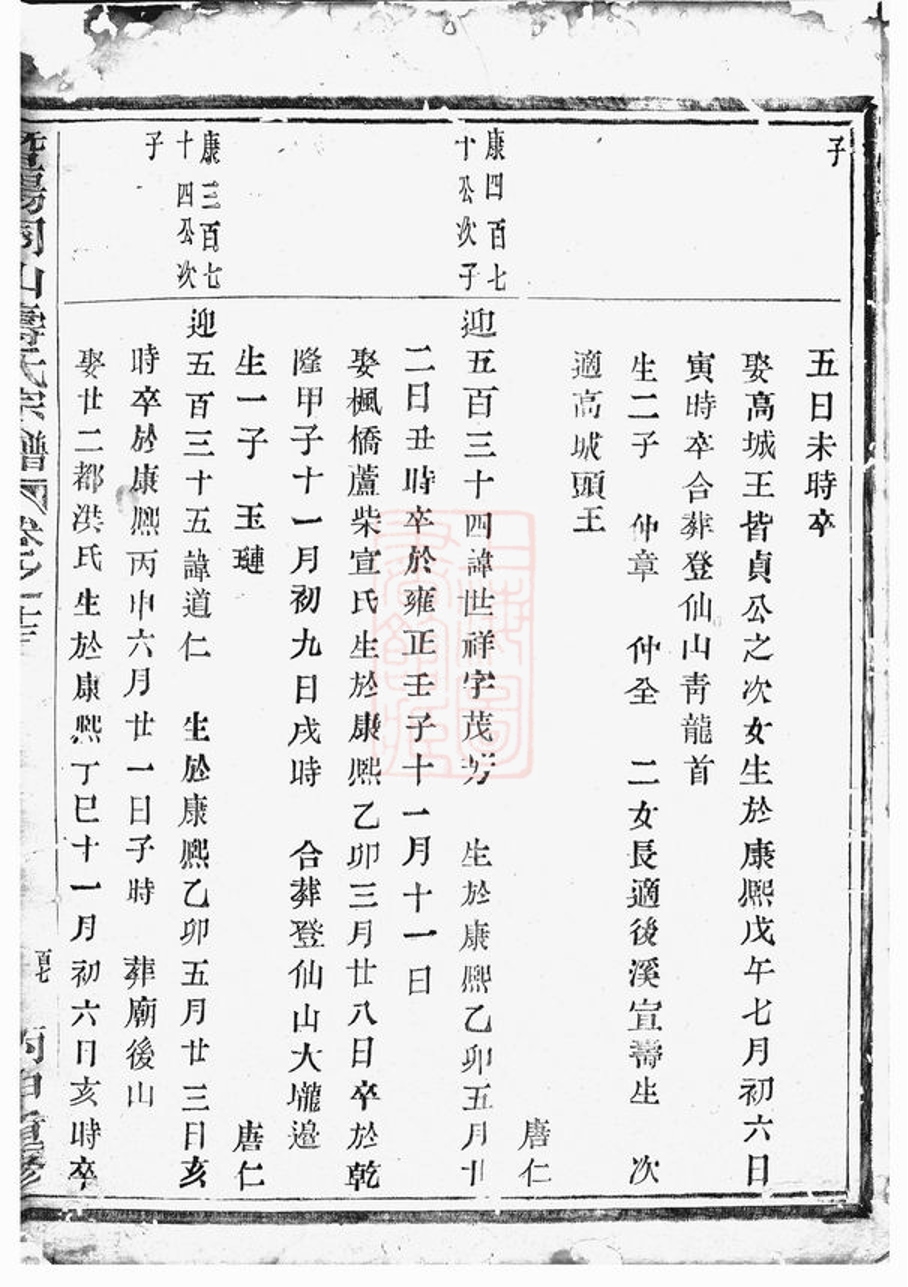 子
五日未時卒
娶高城王皆貞公之次女生於康熙戊午七月初六日
寅時卒合葬登仙山青龍首
生二子 仲章 仲全 二女長適後溪宣壽生 次
適高城頭王
唐仁
康四百七
十公次子
迎五百三十四諱世祥字茂芳 生於康熙乙卯五月廿
二日丑時卒於雍正壬子十一月十一日
娶楓橋蘆柴宣氏生於康熙乙卯三月廿八日卒於乾
隆甲子十一月初九日戌時 合葬登仙山大壠邉
生一子 玉璉 唐仁
康三百七
十四公次
子
迎五百三十五諱道仁 生於康熙乙卯五月廿三日亥
時卒於康熙丙申六月廿一日子時 葬廟後山
娶廿二都洪氏生於康熙丁巳十一月初六日亥時卒
暨陽同山壽氏宗譜 卷之 百七 丙申重修